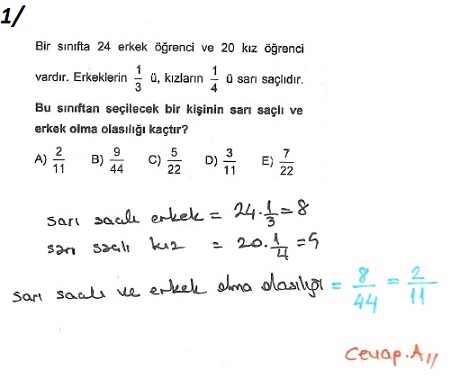 1/
Bir sınıfta 24 erkek öğrenci ve 20 kız öğrenci
vardır. Erkeklerin 1/3 ü, kızların 1/4 ü sarı saçlıdır.
Bu sınıftan seçilecek bir kişinin sarı saçlı ve
erkek olma olasılığı kaçtır?
A) 2/11 B) 9/44 C) 5/22 D) 3/11 E) 7/22
sarı saçlı erkek = 24.1/3=8
sarı saçlı kız = 20.1/4=5
sarı saçlı ve erkek olma olasılığı = 8/44 = 2/11
Cevap.A//